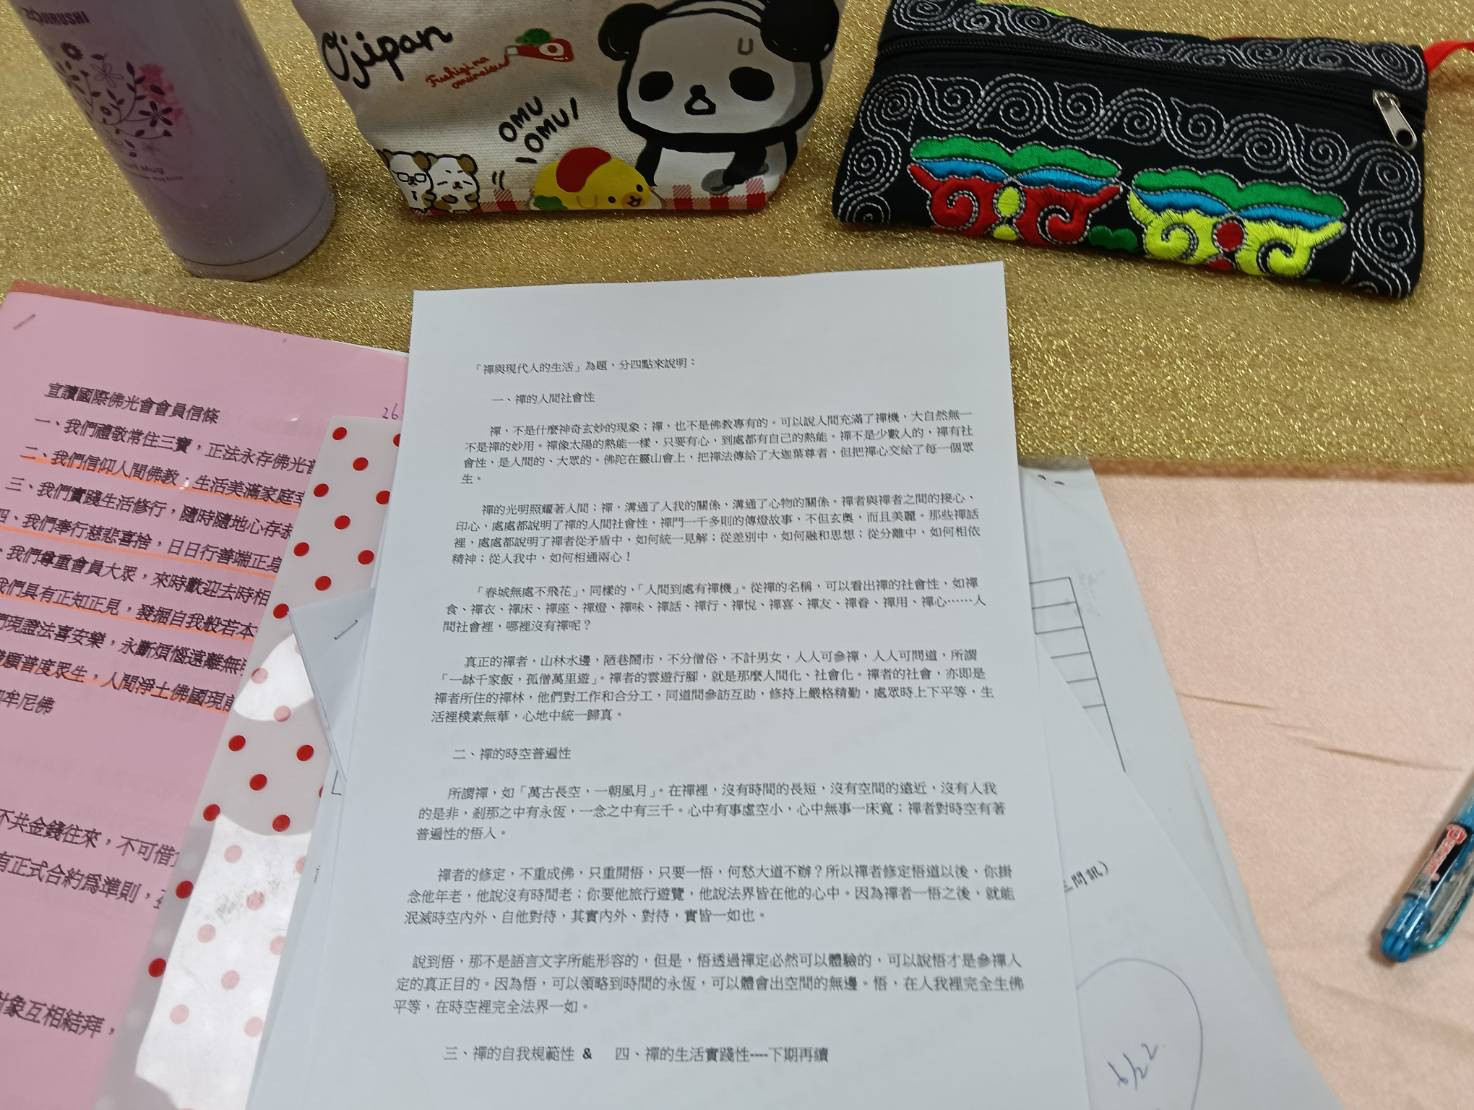 ZOJIRUSHI
Mug
Ojipan
Fushigi na
omuraisu
OMU
OMU!
宣讀國際佛光會會員信條
26
一、我們禮敬常住三寶，正法永存佛光
二、我們信仰人間佛教，生活美滿家庭
三、我們實踐生活修行，隨時隨地心存
四、我們奉行慈悲喜捨，日日行善端正身
、我們尊重會員大眾，來時歡迎去時相
我們具有正知正見，發掘自我般若本
們現證法喜安樂，永斷煩惱遠離無
願普度眾生，人間淨土佛國現前
牟尼佛
不共金錢往來，不可借
有正式合約為準則，
對象互相結拜，
「禪與現代人的生活」為題，分四點來說明：
一、禪的人間社會性
禪，不是什麼神奇玄妙的現象；禪，也不是佛教專有的。可以說人間充滿了禪機，大自然無一
不是禪的妙用。禪像太陽的熱能一樣，只要有心，到處都有自己的熱能。禪不是少數人的，禪有社
會性，是人間的、大眾的。佛陀在靈山會上，把禪法傳給了大迦葉尊者，但把禪心交給了每一個眾
生。
禪的光明照耀著人間；禪，溝通了人我的關係，溝通了心物的關係。禪者與禪者之間的接心、
印心，處處都說明了禪的人間社會性，禪門一千多則的傳燈故事，不但玄奧，而且美麗。那些禪話
裡，處處都說明了禪者從矛盾中，如何統一見解；從差別中，如何融和思想；從分離中，如何相依
精神；從人我中，如何相通兩心！
「春城無處不飛花」，同樣的，「人間到處有禪機」。從禪的名稱，可以看出禪的社會性，如禪
食、禪衣、禪床、禪座、禪燈、禪味、禪話、禪行、禪悅、禪喜、禪友、禪眷、禪用、禪心……人
間社會裡，哪裡沒有禪呢？
真正的禪者，山林水邊，陋巷鬧市，不分僧俗，不計男女，人人可參禪，人人可問道，所謂
「一缽千家飯，孤僧萬里遊」。禪者的雲遊行腳，就是那麼人間化、社會化。禪者的社會，亦即是
禪者所住的禪林，他們對工作和合分工，同道間參訪互助，修持上嚴格精勤，處眾時上下平等，生
活裡樸素無華，心地中統一歸真。
二、禪的時空普遍性
所謂禪，如「萬古長空，一朝風月」。在禪裡，沒有時間的長短，沒有空間的遠近，沒有人我
的是非，剎那之中有永恆，一念之中有三千。心中有事虛空小，心中無事一床寬；禪者對時空有著
普遍性的悟入。
禪者的修定，不重成佛，只重開悟，只要一悟，何愁大道不辦？所以禪者修定悟道以後，你掛
念他年老，他說沒有時間老；你要他旅行遊覽，他說法界皆在他的心中。因為禪者一悟之後，就能
泯滅時空內外、自他對待，其實內外、對待，實皆一如也。
說到悟，那不是語言文字所能形容的，但是，悟透過禪定必然可以體驗的，可以說悟才是參禪入
定的真正目的。因為悟，可以領略到時間的永恆，可以體會出空間的無邊。悟，在人我裡完全生佛
平等，在時空裡完全法界一如。
三、禪的自我規範性 & 四、禪的生活實踐性----下期再續
三問訊）
6/22